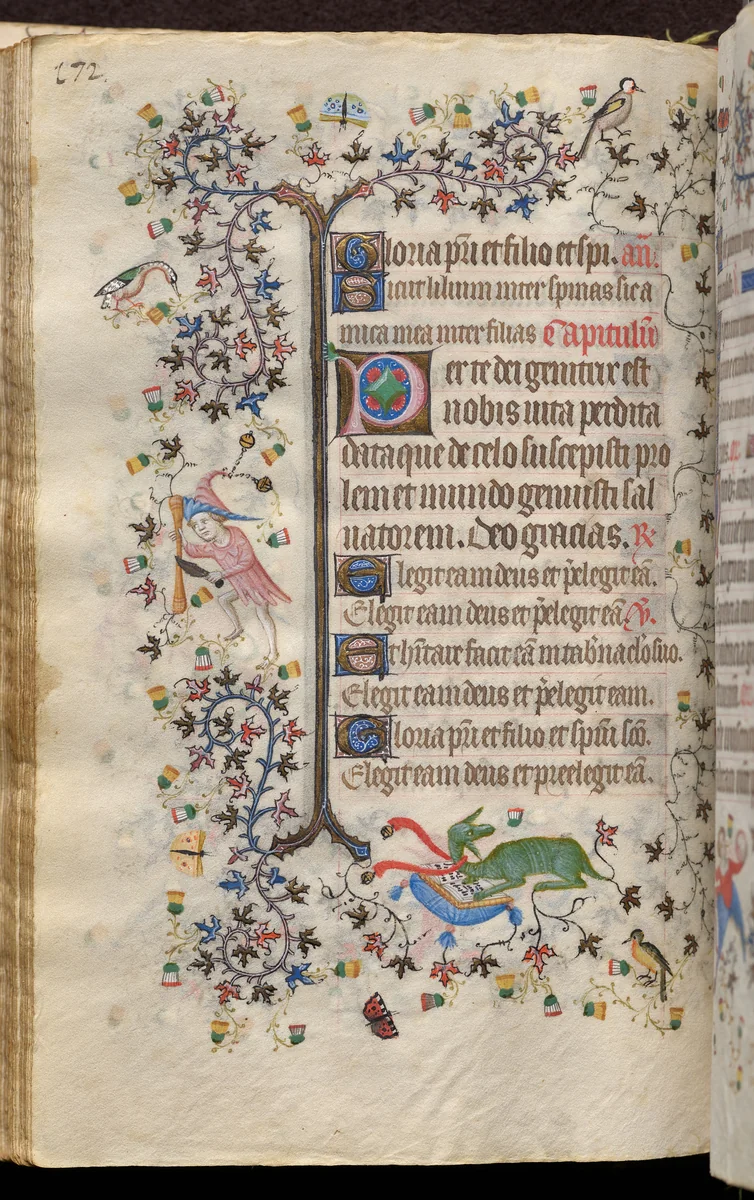 172.
Gloria pri et filio et spi. an.
Sicut lilium inter spinas sic a
mica mea inter filias Capitulū
Per te dei genitrix est
nobis uita perdita
data que de celo suscepisti pro
lem et mundo genuisti sal
uatorem. Deo gracias. R
Elegit eam deus et p̄elegit eā.
Elegit eam deus et p̄elegit eā. V.
Et hītare facit eā in tab̄nac̄lo suo.
Elegit eam deus et p̄elegit eam.
Gloria pri et filio et spūi scō.
Elegit eam deus et preelegit eā.